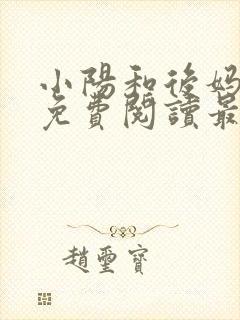 小陽和後媽
免費閱讀最
趙璽寶